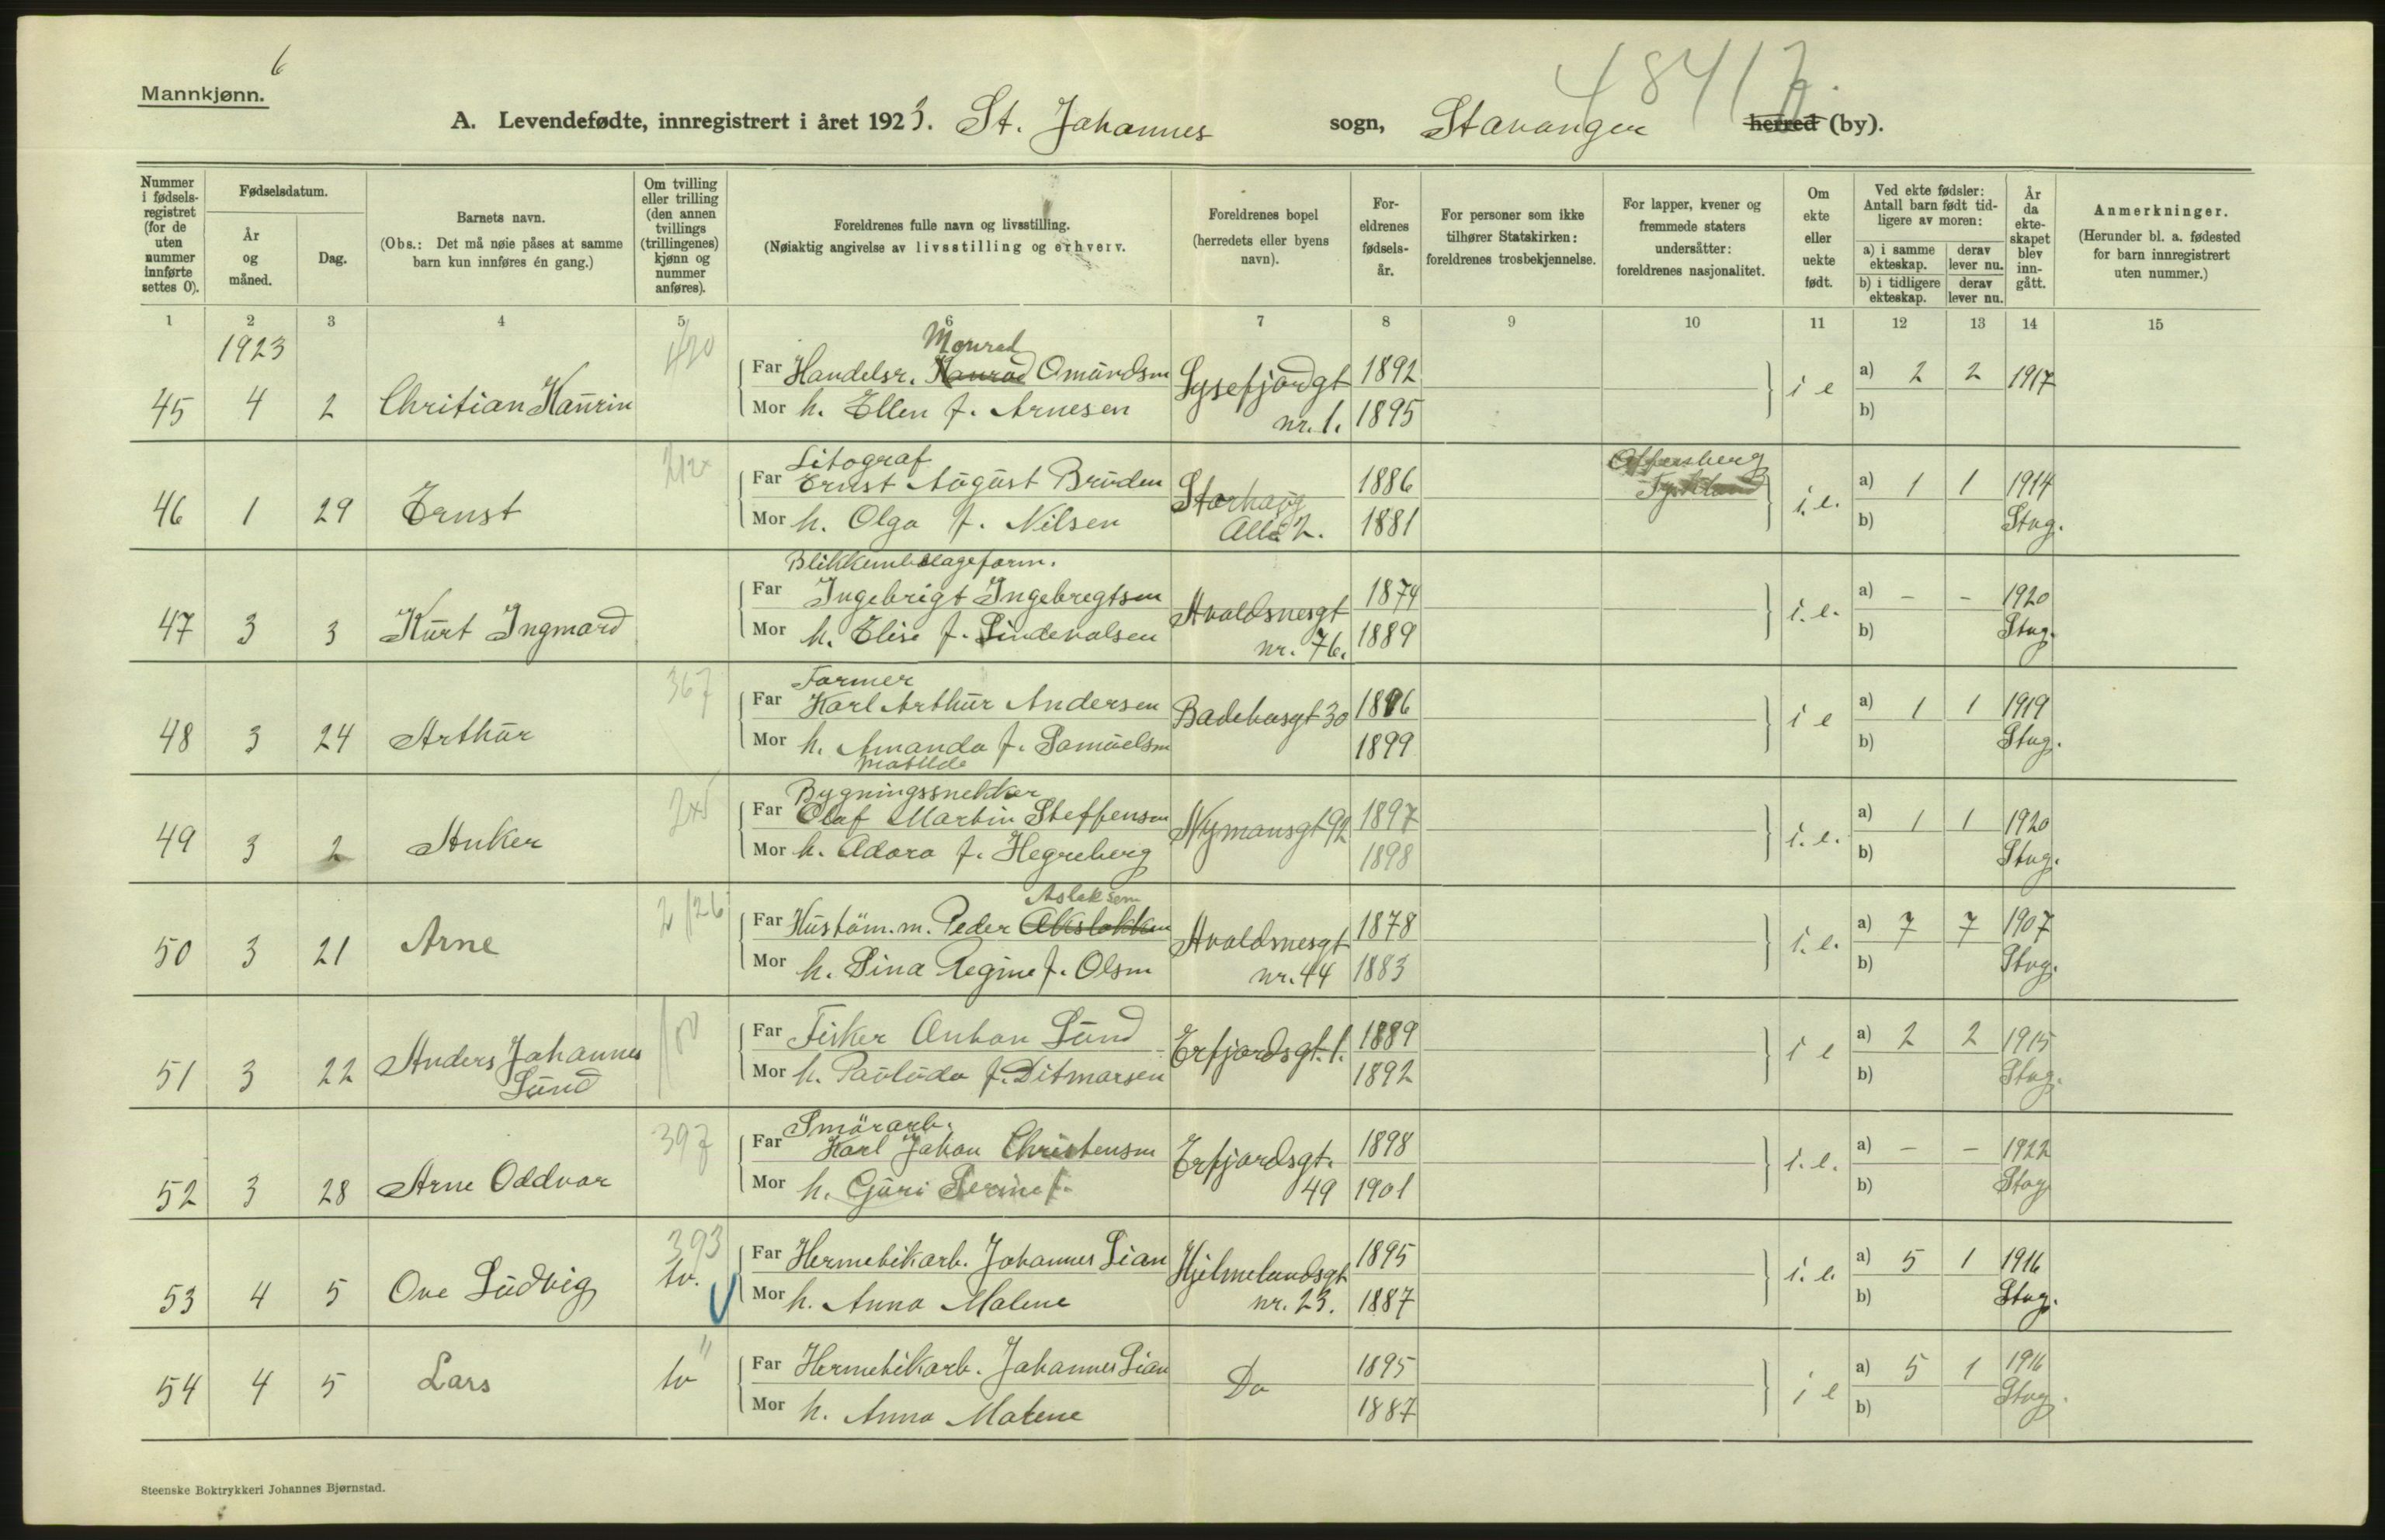 6
Mannkjønn.
A. Levendefødte, innregistrert i året 1923. St. Johannes sogn, Stavanger herred (by).
48417
Nummer i fødselsregistret (for de uten nummer innførte settes 0).
Fødselsdatum.
År og måned.
Dag.
Barnets navn.
(Obs.: Det må nøie påses at samme barn kun innføres én gang.)
Om tvilling eller trilling (den annen tvillings (trillingenes) kjønn og nummer anføres).
Foreldrenes fulle navn og livsstilling.
(Nøiaktig angivelse av livsstilling og erhverv.
Foreldrenes bopel (herredets eller byens navn).
Foreldrenes fødselsår.
For personer som ikke tilhører Statskirken: foreldrenes trosbekjennelse.
For lapper, kvener og fremmede staters undersåtter: foreldrenes nasjonalitet.
Om ekte eller uekte født.
Ved ekte fødsler: Antall barn født tidligere av moren:
a) i samme ekteskap.
derav lever nu.
b) i tidligere ekteskap.
derav lever nu.
År da ekteskapet blev inngått.
Anmerkninger.
(Herunder bl. a. fødested for barn innregistrert uten nummer.)
1 2 3 4 5 6 7 8 9 10 11 12 13 14 15
1923
420
Monrad
Far Handelsr. Konrad Omundsen Lysefjordgt 1892 a) 2 2 1917
45 4 2 Chritian Kaurin i e
Mor h. Ellen f. Arnesen nr. 1. 1895 b)
212x
Litograf
Far Ernst August Bruden Storhaug 1886 a) 1 1 1914
46 1 29 Ernst i. e.
Mor h. Olga f. Nilsen Allé 2. 1881 b) Stvg.
Blikkemballageform.
Far Ingebrigt Ingebregtsen Avaldsnesgt 1874 a) - - 1920
47 3 3 Kurt Ingmard i. e.
Mor h. Elise f. Lindevalsen nr. 76. 1889 b) Stvg.
367
Farmer
Far Karl Arthur Andersen Badehusgt 30 1896 a) 1 1 1919
48 3 24 Arthur i e
Mor h. Amanda f. Samuelsen 1899 b) Stvg.
Matilde
Bygningssnekker
Far Olaf Martin Steffensen Nymansgt 92 1897 a) 1 1 1920
49 3 2 Anker i. e.
Mor h. Adora f. Hegreberg 1898 b) Stvg.
2/26
Asleksen
Far Hustöm.m. Peder Akslokken Avaldsnesgt 1878 a) 7 7 1907
50 3 21 Arne i. e.
Mor h. Sina Regine f. Olsen nr. 44 1883 b) Stvg.
Far Fisker Anton Lund Erfjordsgt. 1. 1889 a) 2 2 1915
51 3 22 Anders Johannes Lund i e
Mor h. Paulude f. Ditmarsen 1892 b) Stvg.
397
Smörarb.
Far Karl Johan Christensen Erfjordsgt. 1898 a) - - 1922
52 3 28 Arne Oddvar i. e.
Mor h. Guri Serine f. 49 1901 b) Stvg
393
Far Hermetikarb. Johannes Lian Hjelmelandsgt 1895 a) 5 1 1916
53 4 5 Ove Ludvig tv. i. e.
Mor h. Anna Malene nr. 23. 1887 b) Stvg.
"
Far Hermetikarb. Johannes Lian Do 1895 a) 5 1 1916
54 4 5 Lars tv i e
Mor h. Anna Malene 1887 b) Stvg.
Steenske Boktrykkeri Johannes Bjørnstad.